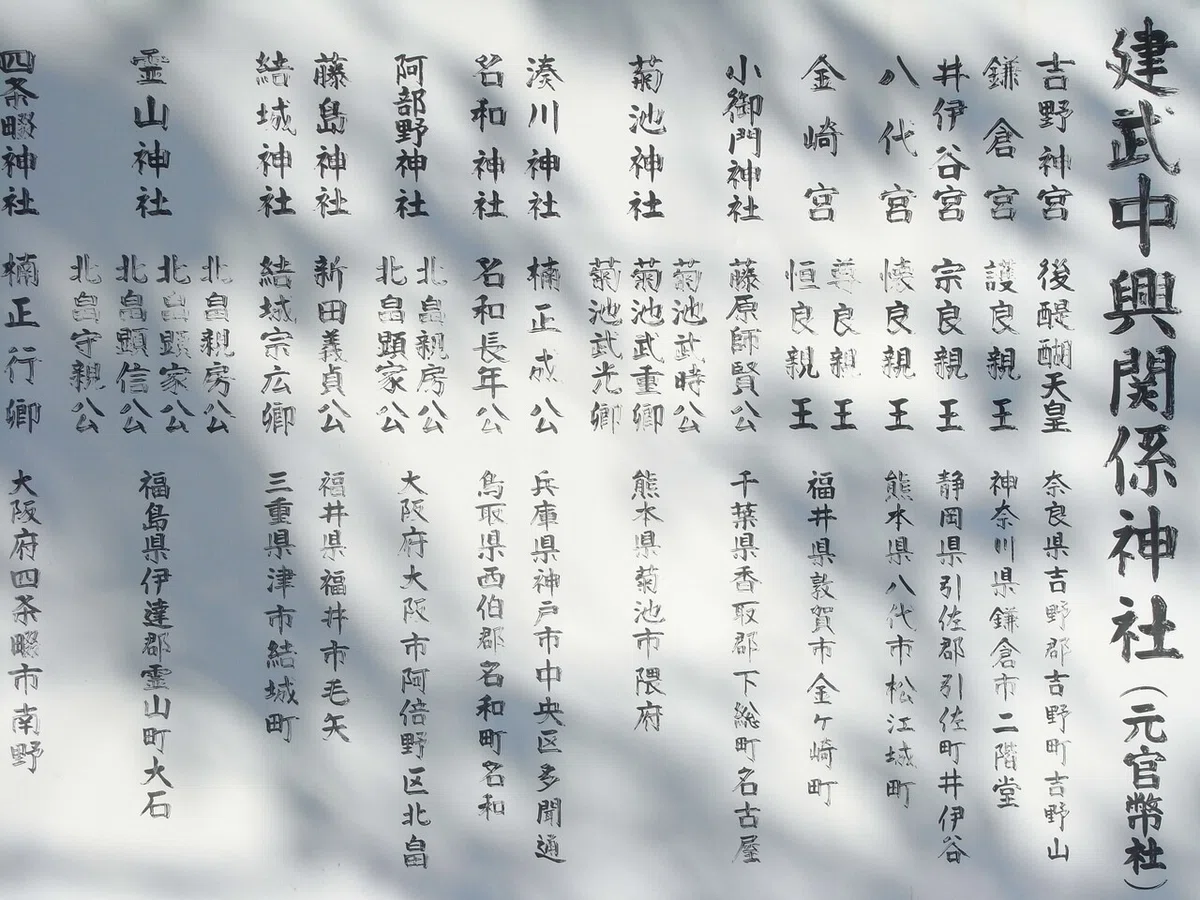 建武中興関係神社(元官幣社)
吉野神宮 後醍醐天皇 奈良県吉野郡吉野町吉野山
鎌倉宮 護良親王 神奈川県鎌倉市二階堂
井伊谷宮 宗良親王 静岡県引佐郡引佐町井伊谷
八代宮 懐良親王 熊本県八代市松江城町
金崎宮 尊良親王
恒良親王 福井県敦賀市金ケ崎町
小御門神社 藤原師賢公 千葉県香取郡下総町名古屋
菊池神社 菊池武時公
菊池武重卿
菊池武光卿 熊本県菊池市隈府
湊川神社 楠正成公 兵庫県神戸市中央区多聞通
名和神社 名和長年公 鳥取県西伯郡名和町名和
阿部野神社 北畠親房公
北畠顕家公 大阪府大阪市阿倍野区北畠
藤島神社 新田義貞公 福井県福井市毛矢
結城神社 結城宗広卿 三重県津市結城町
霊山神社 北畠親房公
北畠顕家公
北畠顕信公
北畠守親公 福島県伊達郡霊山町大石
四条畷神社 楠正行卿 大阪府四条畷市南野